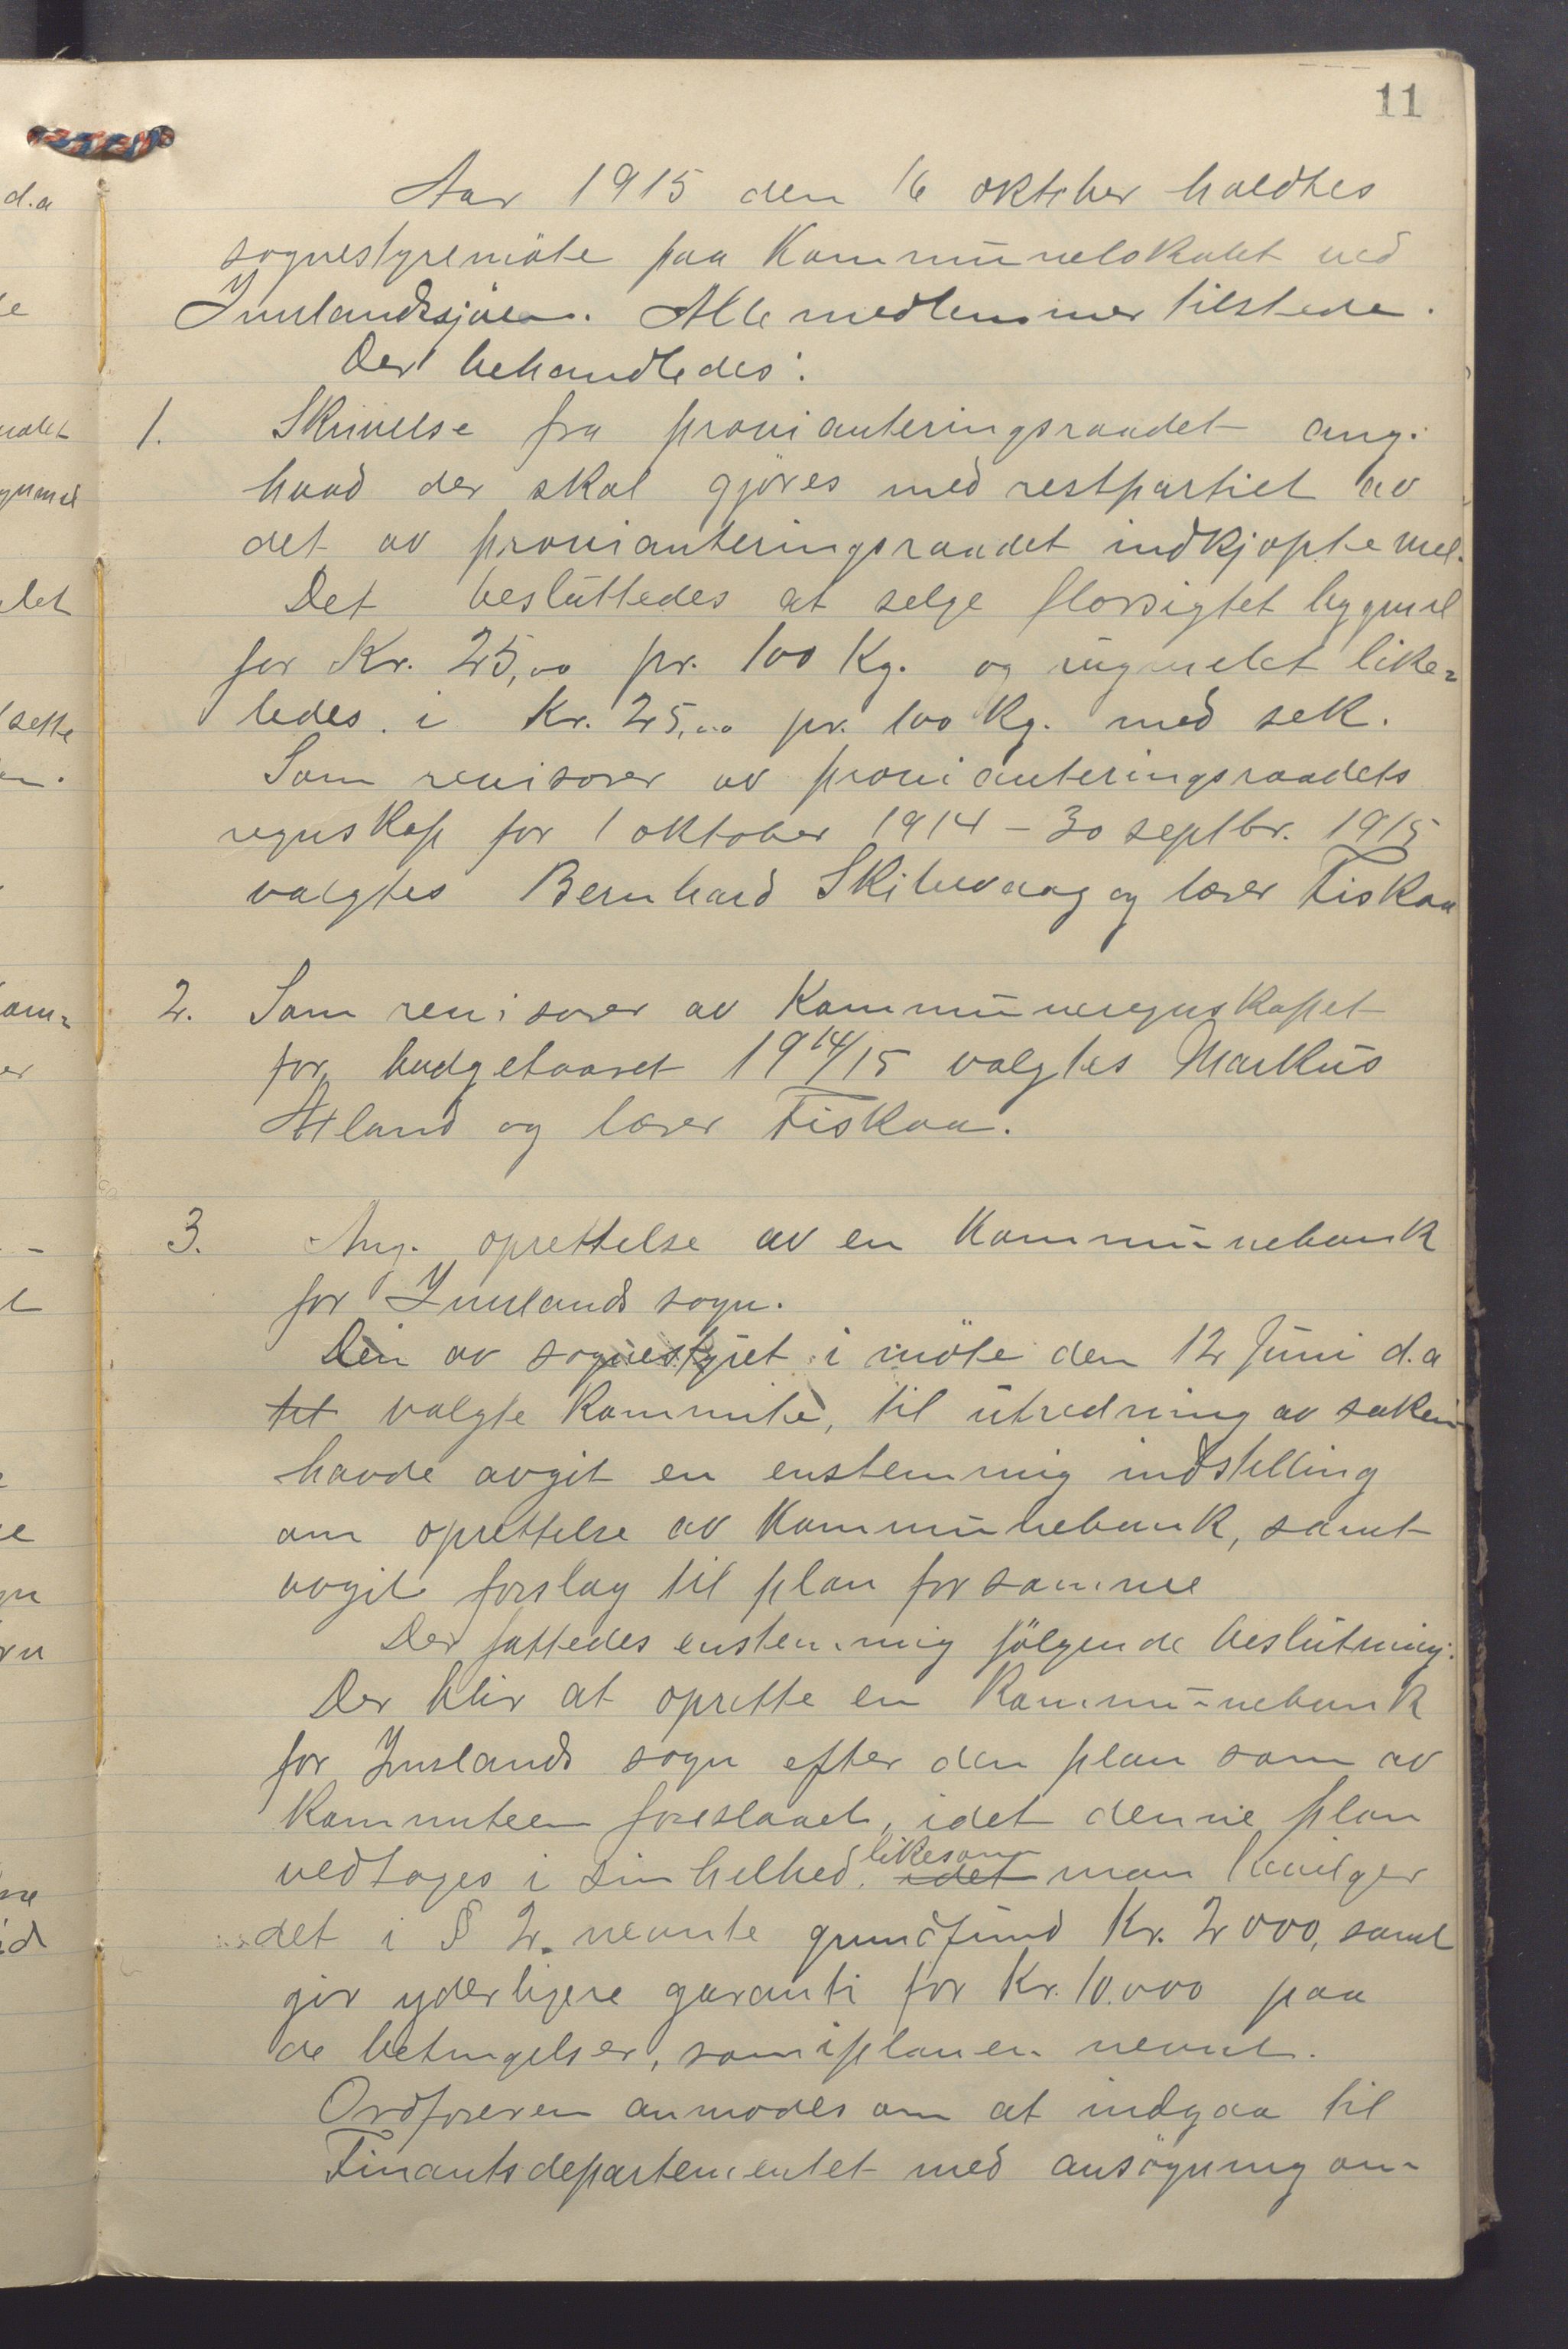 11
Aar 1915 den 16 oktober holdtes
sognestyremöte paa Kommunelokalet ved
Imslandssjöen. Alle medlemmer tilstede.
Der behandledes:
1. Skrivelse fra provianteringsraadet ang.
hvad der skal gjöres med restpartiet av
det av provianteringsraadet indkjöpte mel.
Det besluttedes at selge florsigtet bygmel
for Kr. 25,00 pr. 100 Kg. og rugmelet like=
ledes i Kr. 25,00 pr. 100 Kg. med sek.
Som revisorer av provianteringsraadets
regnskap for 1 oktober 1914 – 30 septbr. 1915
valgtes Bernhard Skibevaag og lærer Fiskaa
2. Som revisorer av Kommuneregnskapet
for budgetaaret 1914/15 valgtes Markus
Aland og lærer Fiskaa.
3. Ang. oprettelse av en Kommunebank
for Imslands sogn.
Den av sognestyret i möte den 12 Juni d.a
tet valgte Kommite, til utredning av saken
havde avgit en enstemmig indstilling
om oprettelse av Kommunebank, samt
avgit forslag til plan for samme
Der fattedes enstemmig fölgende beslutning:
Der blir at oprette en Kommunebank
for Imslands sogn efter den plan som av
Kommiteen foreslaaet, idet denne plan
vedtages i sin helhed, idet likesom man bevilger
det i § 2. nevnte grundfund Kr. 2000, samt
gir yderligere garanti for Kr. 10.000 paa
de betingelser, som i planen nevnt.
Ordföreren anmodes om at indgaa til
Finantsdepartementet med ansögning om